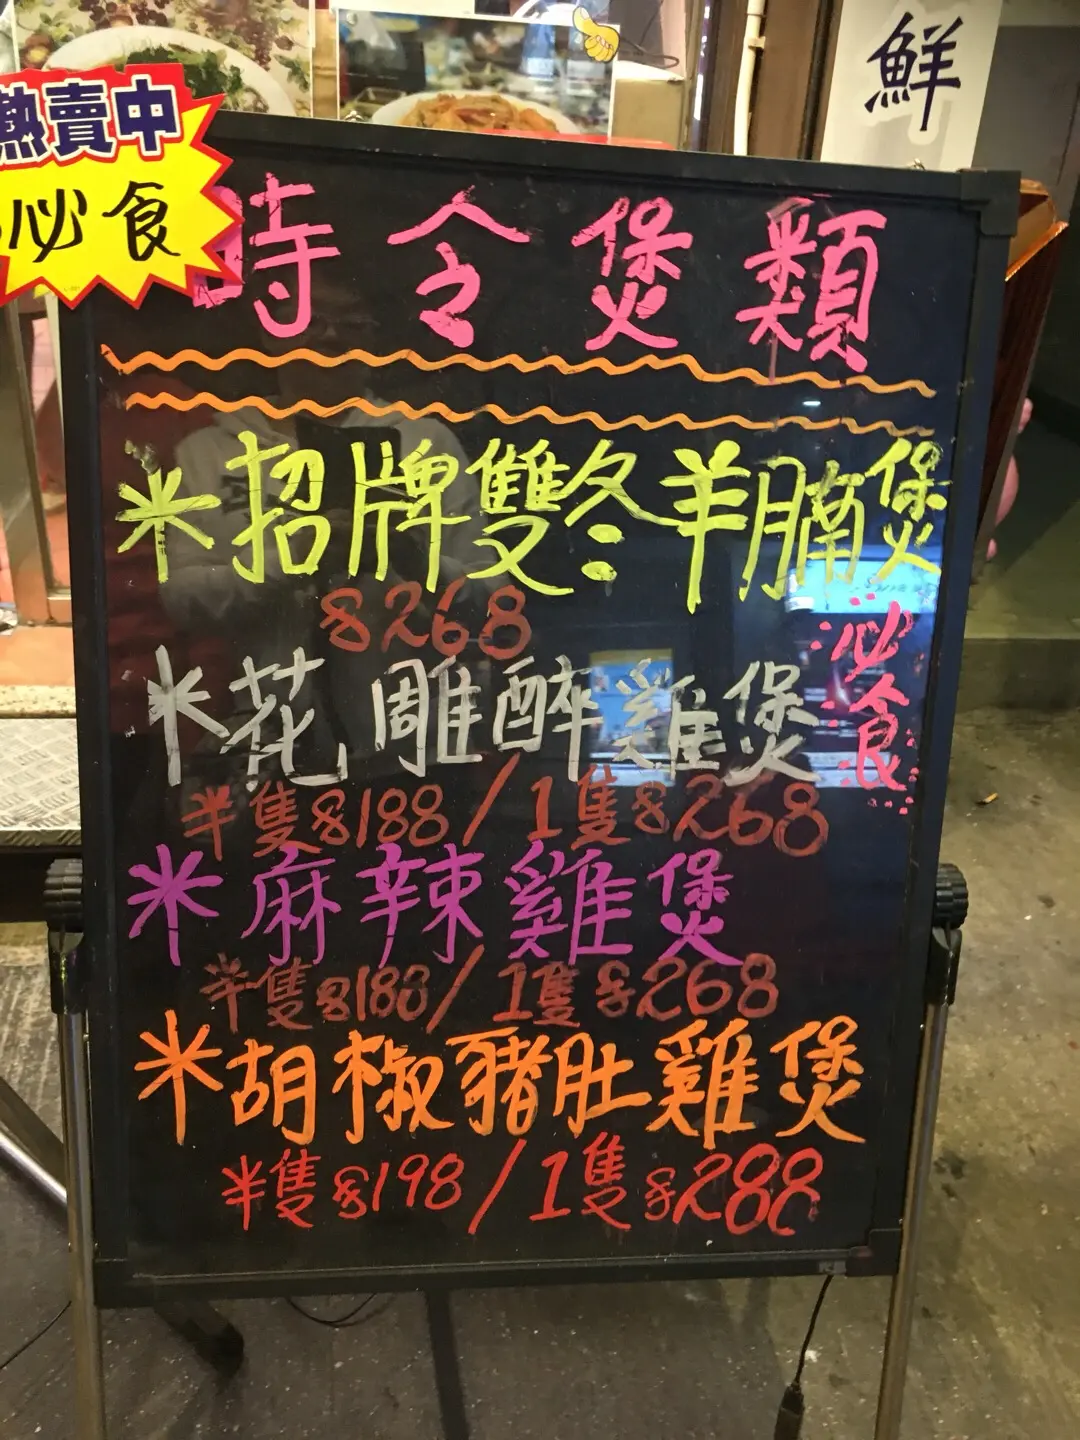 鮮
熱賣中
必食
時令煲類
米招牌雙冬羊腩煲
$268
必食
米花雕醉雞煲
半隻$188/1隻$268
米麻辣雞煲
半隻$188/1隻$268
米胡椒豬肚雞煲
半隻$198/1隻$288